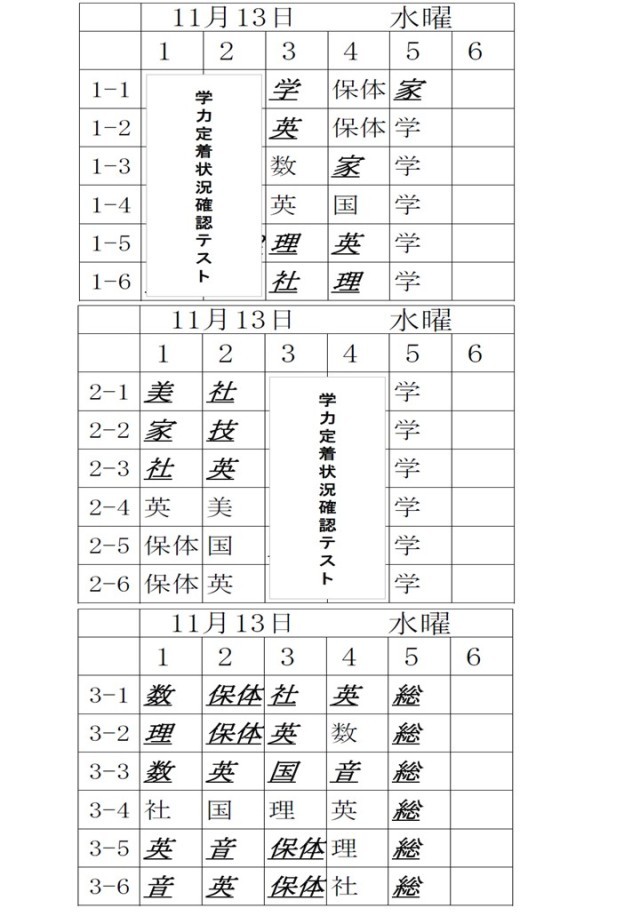 11月13日 水曜
1 2 3 4 5 6
1-1 学 保体 家
1-2 英 保体 学
1-3 数 家 学
1-4 英 国 学
1-5 理 英 学
1-6 社 理 学
学力定着状況確認テスト
11月13日 水曜
1 2 3 4 5 6
2-1 美 社 学
2-2 家 技 学
2-3 社 英 学
2-4 英 美 学
2-5 保体 国 学
2-6 保体 英 学
学力定着状況確認テスト
11月13日 水曜
1 2 3 4 5 6
3-1 数 保体 社 英 総
3-2 理 保体 英 数 総
3-3 数 英 国 音 総
3-4 社 国 理 英 総
3-5 英 音 保体 理 総
3-6 音 英 保体 社 総